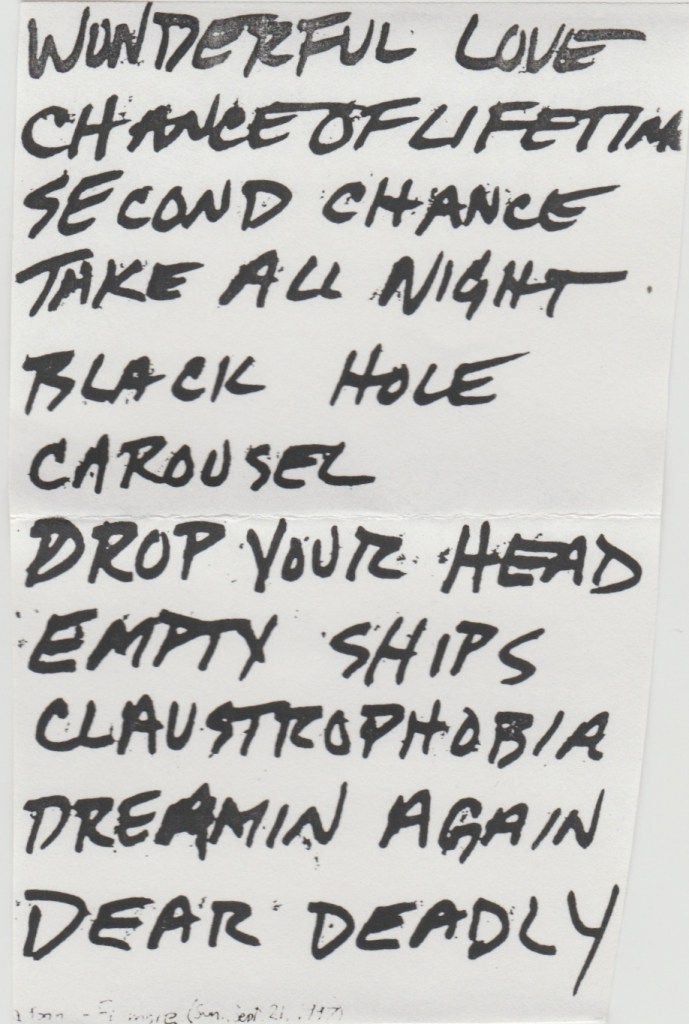 WONDERFUL LOVE
CHANCE OF LIFETIM
SECOND CHANCE
TAKE ALL NIGHT
BLACK HOLE
CAROUSEL
DROP YOUR HEAD
EMPTY SHIPS
CLAUSTROPHOBIA
DREAMIN AGAIN
DEAR DEADLY
Sept. 21,